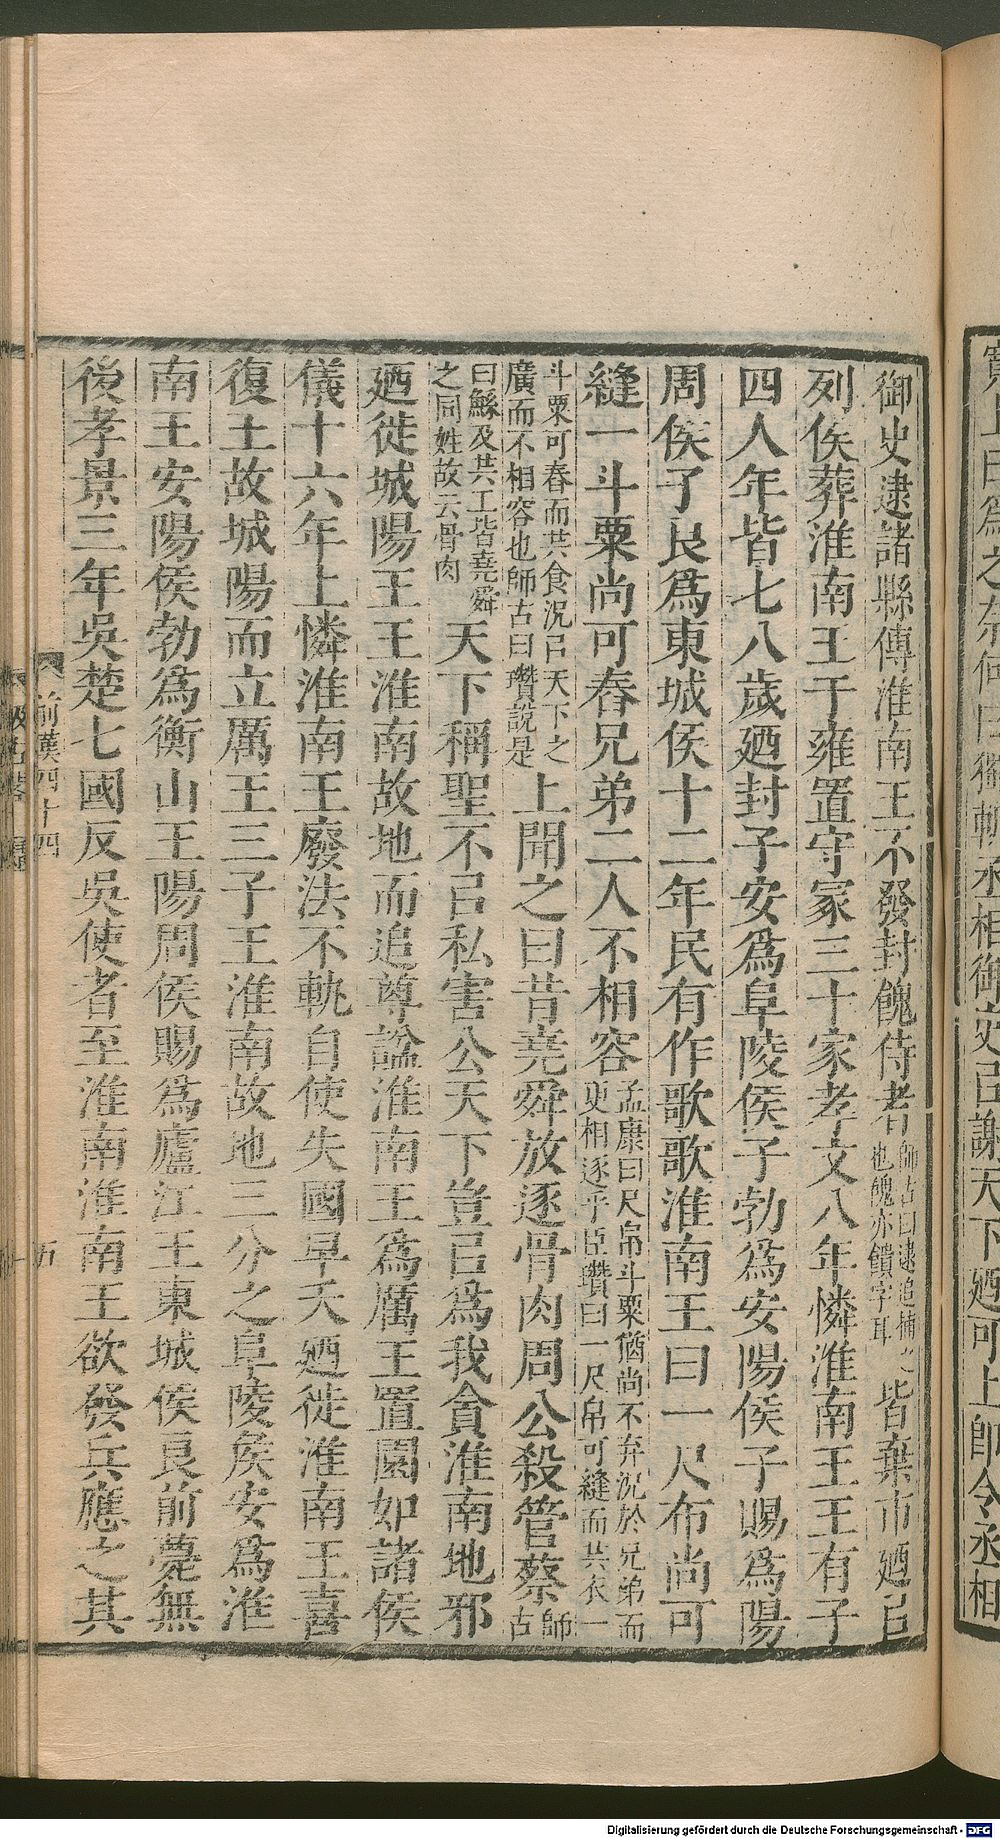 御史逮諸縣傳淮南王不發封餽侍者師古曰逮追捕之也餽亦饋字耳皆棄市廼㠯
列侯葬淮南王于雍置守冢三十家孝文八年憐淮南王王有子
四人年皆七八歲廼封子安爲阜陵侯子勃爲安陽侯子賜爲陽
周侯子良爲東城侯十二年民有作歌歌淮南王曰一尺布尚可
縫一斗粟尚可舂兄弟二人不相容孟康曰尺帛斗粟猶尚不弃況於兄弟而更相逐乎臣瓚曰一尺帛可縫而共衣一
斗粟可舂而共食況㠯天下之廣而不相容也師古曰瓚說是上聞之曰昔堯舜放逐骨肉周公殺管蔡師古
曰鯀及共工皆堯舜之同姓故云骨肉天下稱聖不㠯私害公天下豈㠯爲我貪淮南地邪
廼徙城陽王王淮南故地而追尊諡淮南王爲厲王置園如諸侯
儀十六年上憐淮南王廢法不軌自使失國早夭廼徙淮南王喜
復王故城陽而立厲王三子王淮南故地三分之阜陵侯安爲淮
南王安陽侯勃爲衡山王陽周侯賜爲廬江王東城侯良前薨無
後孝景三年吳楚七國反吳使者至淮南淮南王欲發兵應之其
前漢四十四
五
Digitalisierung gefördert durch die Deutsche Forschungsgemeinschaft - DFG